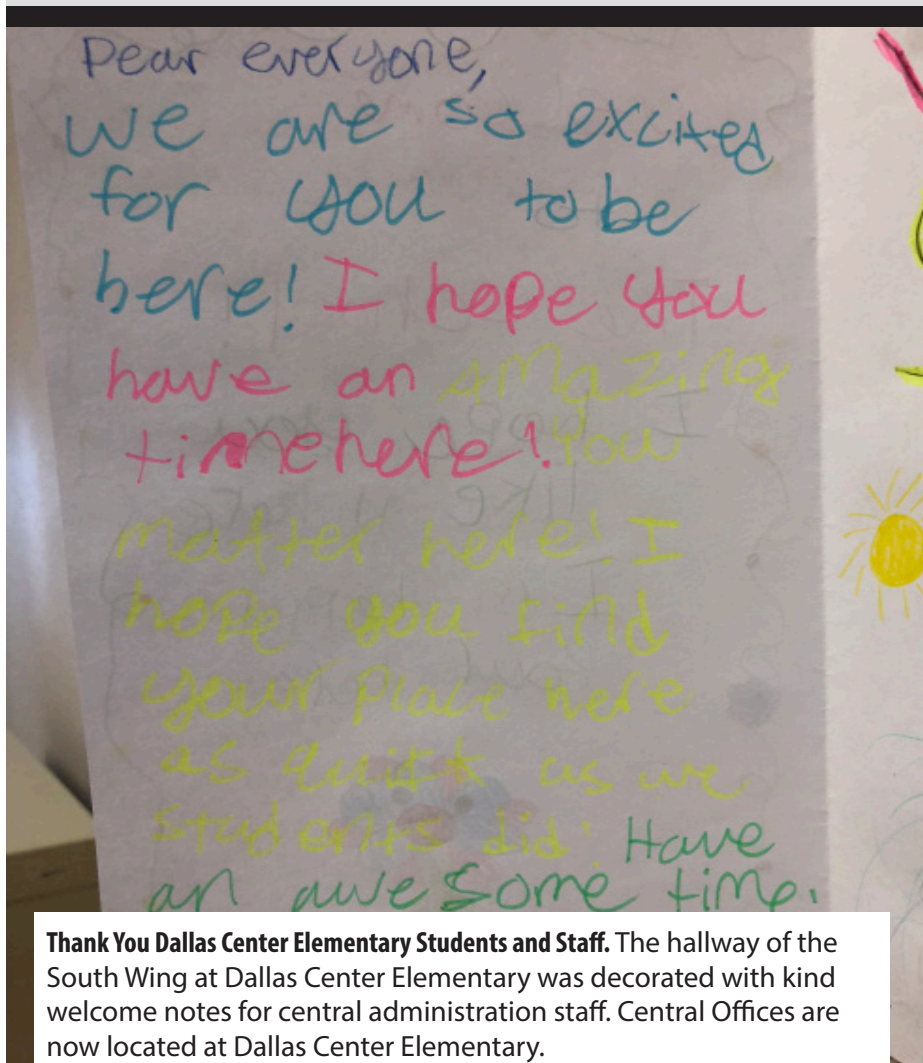 Dear everyone,
we are so excited
for you to be
here! I hope you
have an amazing
time here! You
matter here! I
hope you find
your Place here
as quick as we
students did! Have
an awesome time.
Thank You Dallas Center Elementary Students and Staff. The hallway of the
South Wing at Dallas Center Elementary was decorated with kind
welcome notes for central administration staff. Central Offices are
now located at Dallas Center Elementary.